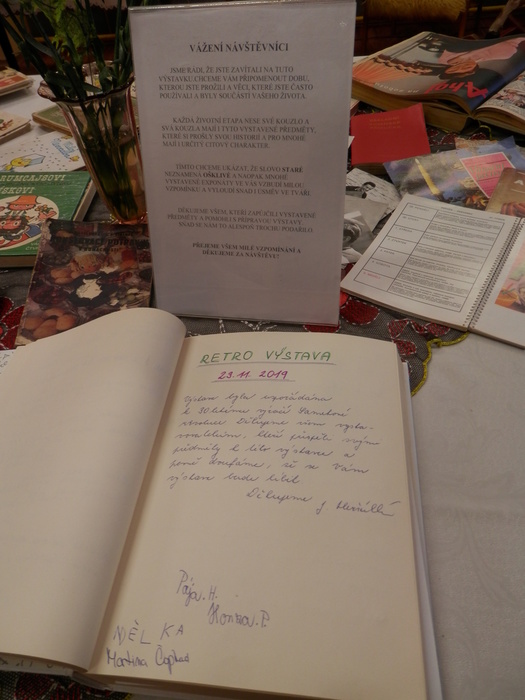 VÁŽENÍ NÁVŠTĚVNÍCI
JSME RÁDI, ŽE JSTE ZAVÍTALI NA TUTO
VÝSTAVKU. CHCEME VÁM PŘIPOMENOUT DOBU,
KTEROU JSTE PROŽILI A VĚCI, KTERÉ JSTE ČASTO
POUŽÍVALI A BYLY SOUČÁSTÍ VAŠEHO ŽIVOTA.
KAŽDÁ ŽIVOTNÍ ETAPA NESE SVÉ KOUZLO A
SVÁ KOUZLA MAJÍ I TYTO VYSTAVENÉ PŘEDMĚTY,
KTERÉ SI PROŠLY SVOU HISTORIÍ A PRO MNOHÉ
MAJÍ I URČITÝ CITOVÝ CHARAKTER.
TÍMTO CHCEME UKÁZAT, ŽE SLOVO STARÉ
NEZNAMENÁ OŠKLIVÉ A NAOPAK MNOHÉ
VYSTAVENÉ EXPONÁTY VE VÁS VZBUDÍ MILOU
VZPOMÍNKU A VYLOUDÍ SNAD I ÚSMĚV VE TVÁŘI.
DĚKUJEME VŠEM, KTEŘÍ ZAPŮJČILI VYSTAVENÉ
PŘEDMĚTY A POMOHLI S PŘÍPRAVOU VÝSTAVY.
SNAD SE NÁM TO ALESPOŇ TROCHU PODAŘILO.
PŘEJEME VŠEM MILÉ VZPOMÍNÁNÍ A
DĚKUJEME ZA NÁVŠTĚVU!
RUMCAJSOVI
Ahoj
RETRO VÝSTAVA
23.11.2019
Výstava byla uspořádána
k 30letému výročí Sametové
revoluce. Děkujeme všem vysta-
vovatelům, kteří přispěli svými
předměty k této výstavě a
pevně doufáme, že se Vám
výstava bude líbit.
Děkujeme
Pája. H.
Honza. P.
NĚLKA
Martina